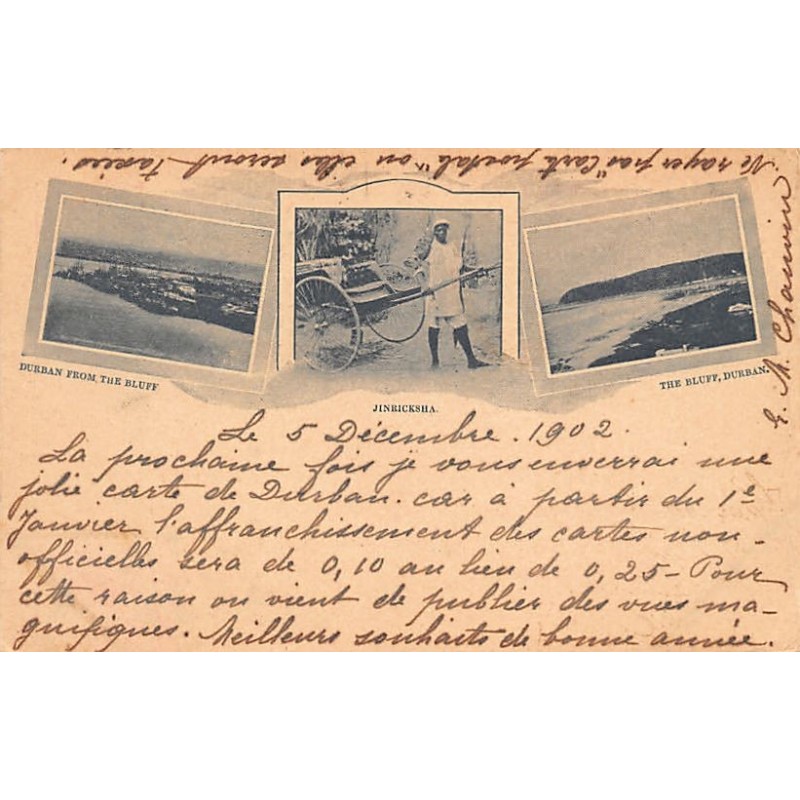 Ne rayer pas "Carte postale" ou elles seront taxées.
DURBAN FROM THE BLUFF
JINRICKSHA.
THE BLUFF, DURBAN.
E. M. Chauvin
Le 5 Décembre. 1902.
La prochaine fois je vous enverrai une
jolie carte de Durban. car à partir du 1e
Janvier l'affranchissement des cartes non-
officielles sera de 0,10 au lieu de 0,25 - Pour
cette raison on vient de publier des vues ma-
gnifiques. Meilleurs souhaits de bonne année.